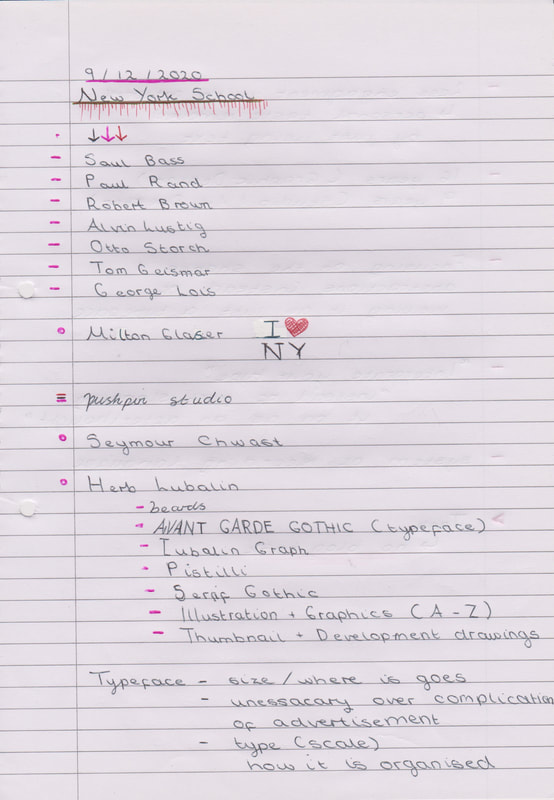 9/12/2020
New York School
- Saul Bass
- Paul Rand
- Robert Brown
- Alvin Lustig
- Otto Storch
- Tom Geismar
- George Lois
Milton Glaser I ♥
NY
pushpin studio
Seymour Chwast
Herb Lubalin
- beards
- AVANT GARDE GOTHIC (typeface)
- Lubalin Graph
- Pistilli
- Serif Gothic
- Illustration + Graphics (A - Z)
- Thumbnail + Development drawings
Typeface - size/where is goes
- unessacary over complication
of advertisement
- type (scale)
how it is organised